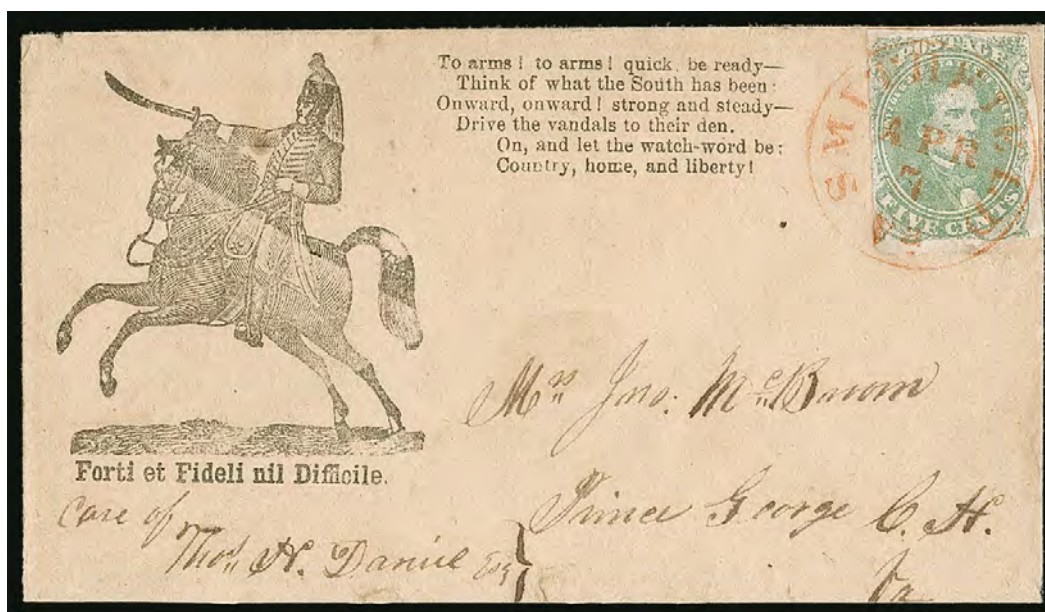 To arms! to arms! quick, be ready—
Think of what the South has been:
Onward, onward! strong and steady—
Drive the vandals to their den.
On, and let the watch-word be:
Country, home, and liberty!
POSTAGE
FIVE CENTS
SMITHFIELD
APR
7
VA
Forti et Fideli nil Difficile.
Mrs Jno. McBroom
Prince George C. H.
Va
Care of
Thos. H. Daniel Esq